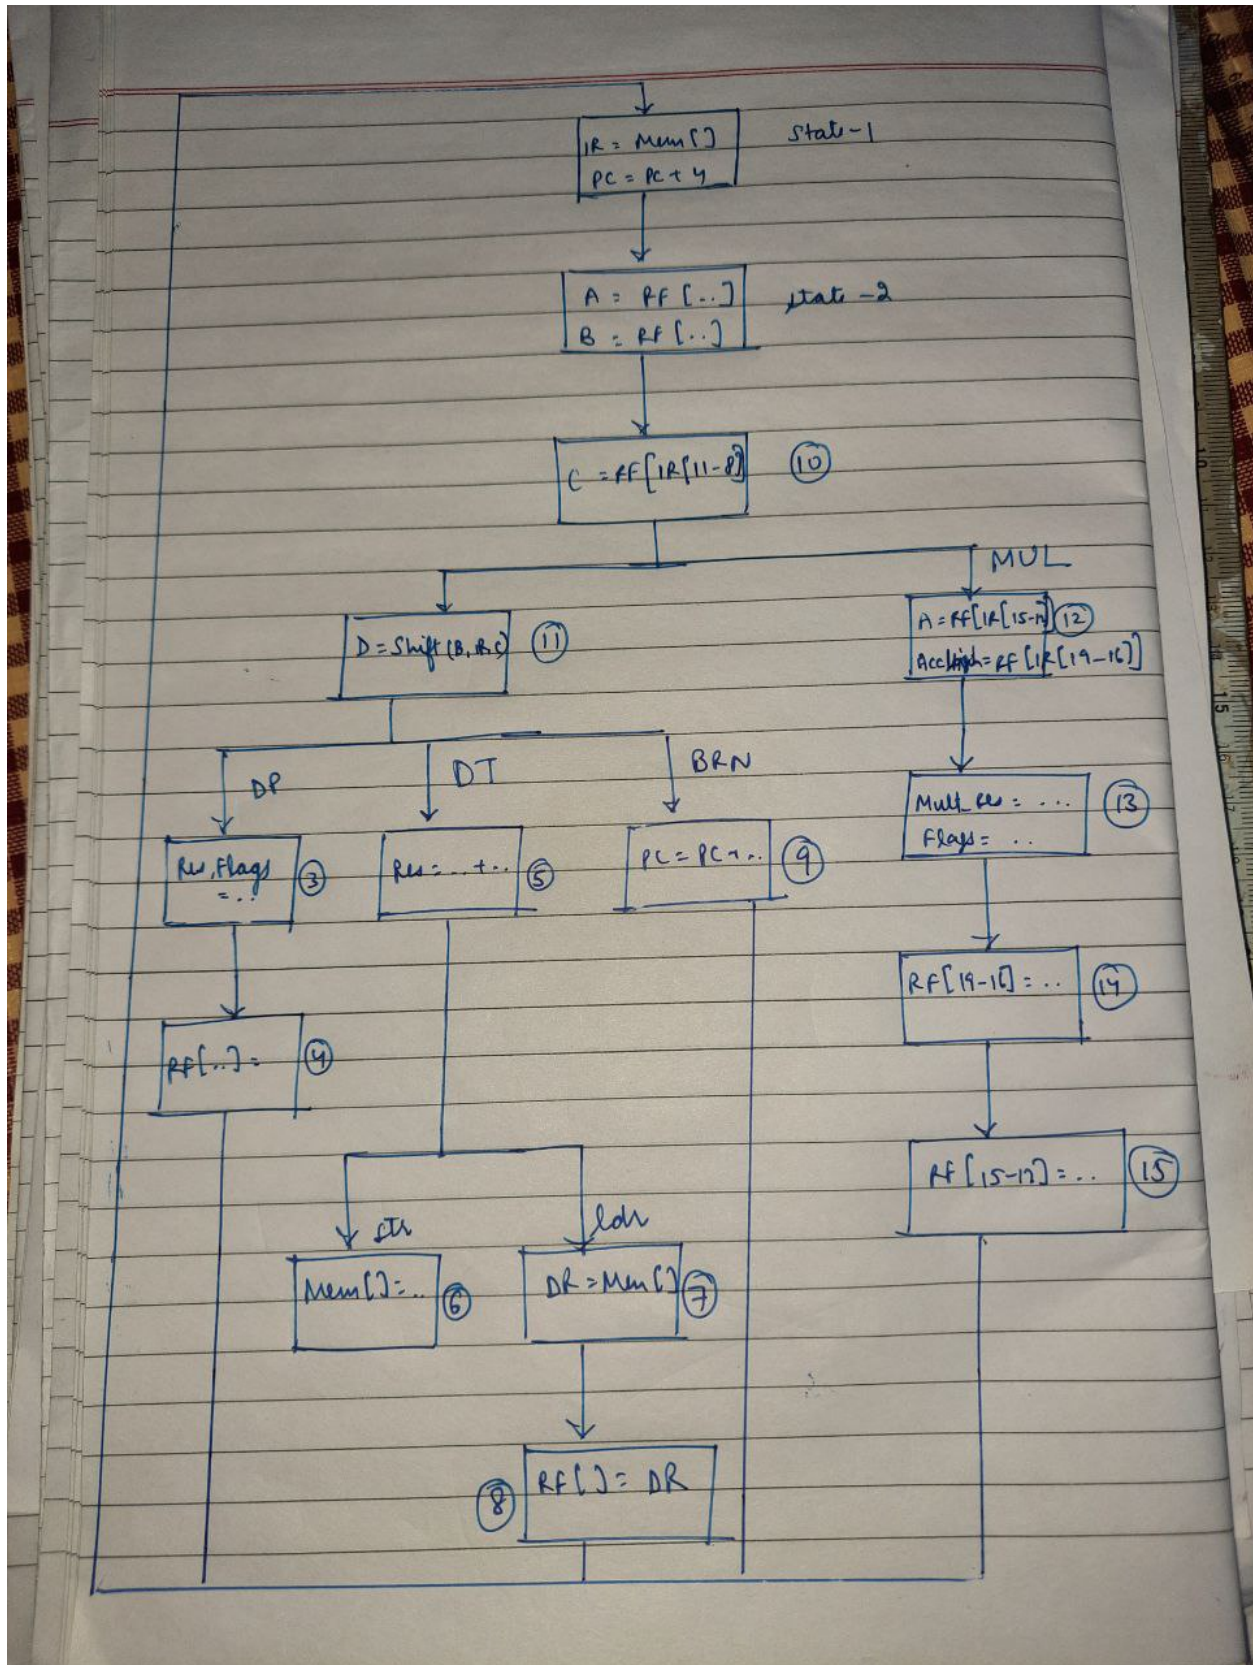 IR = Mem[]
PC = PC + 4
State-1
A = RF [..]
B = RF [..]
state -2
C = RF[IR[11-8]
10
MUL
D = Shift (B, C)
11
A = RF[IR[15-12]
12
AccHigh = RF [IR[19-16]]
DP
DT
BRN
Res, Flags
= ..
3
Res = .. + ..
5
PC = PC + ..
9
Mult_Res = ...
Flags = ..
13
RF[19-16] = ..
14
RF[..] =
4
RF [15-12] = ..
15
str
ldr
Mem[] = ..
6
DR = Mem[]
7
8
RF[] = DR